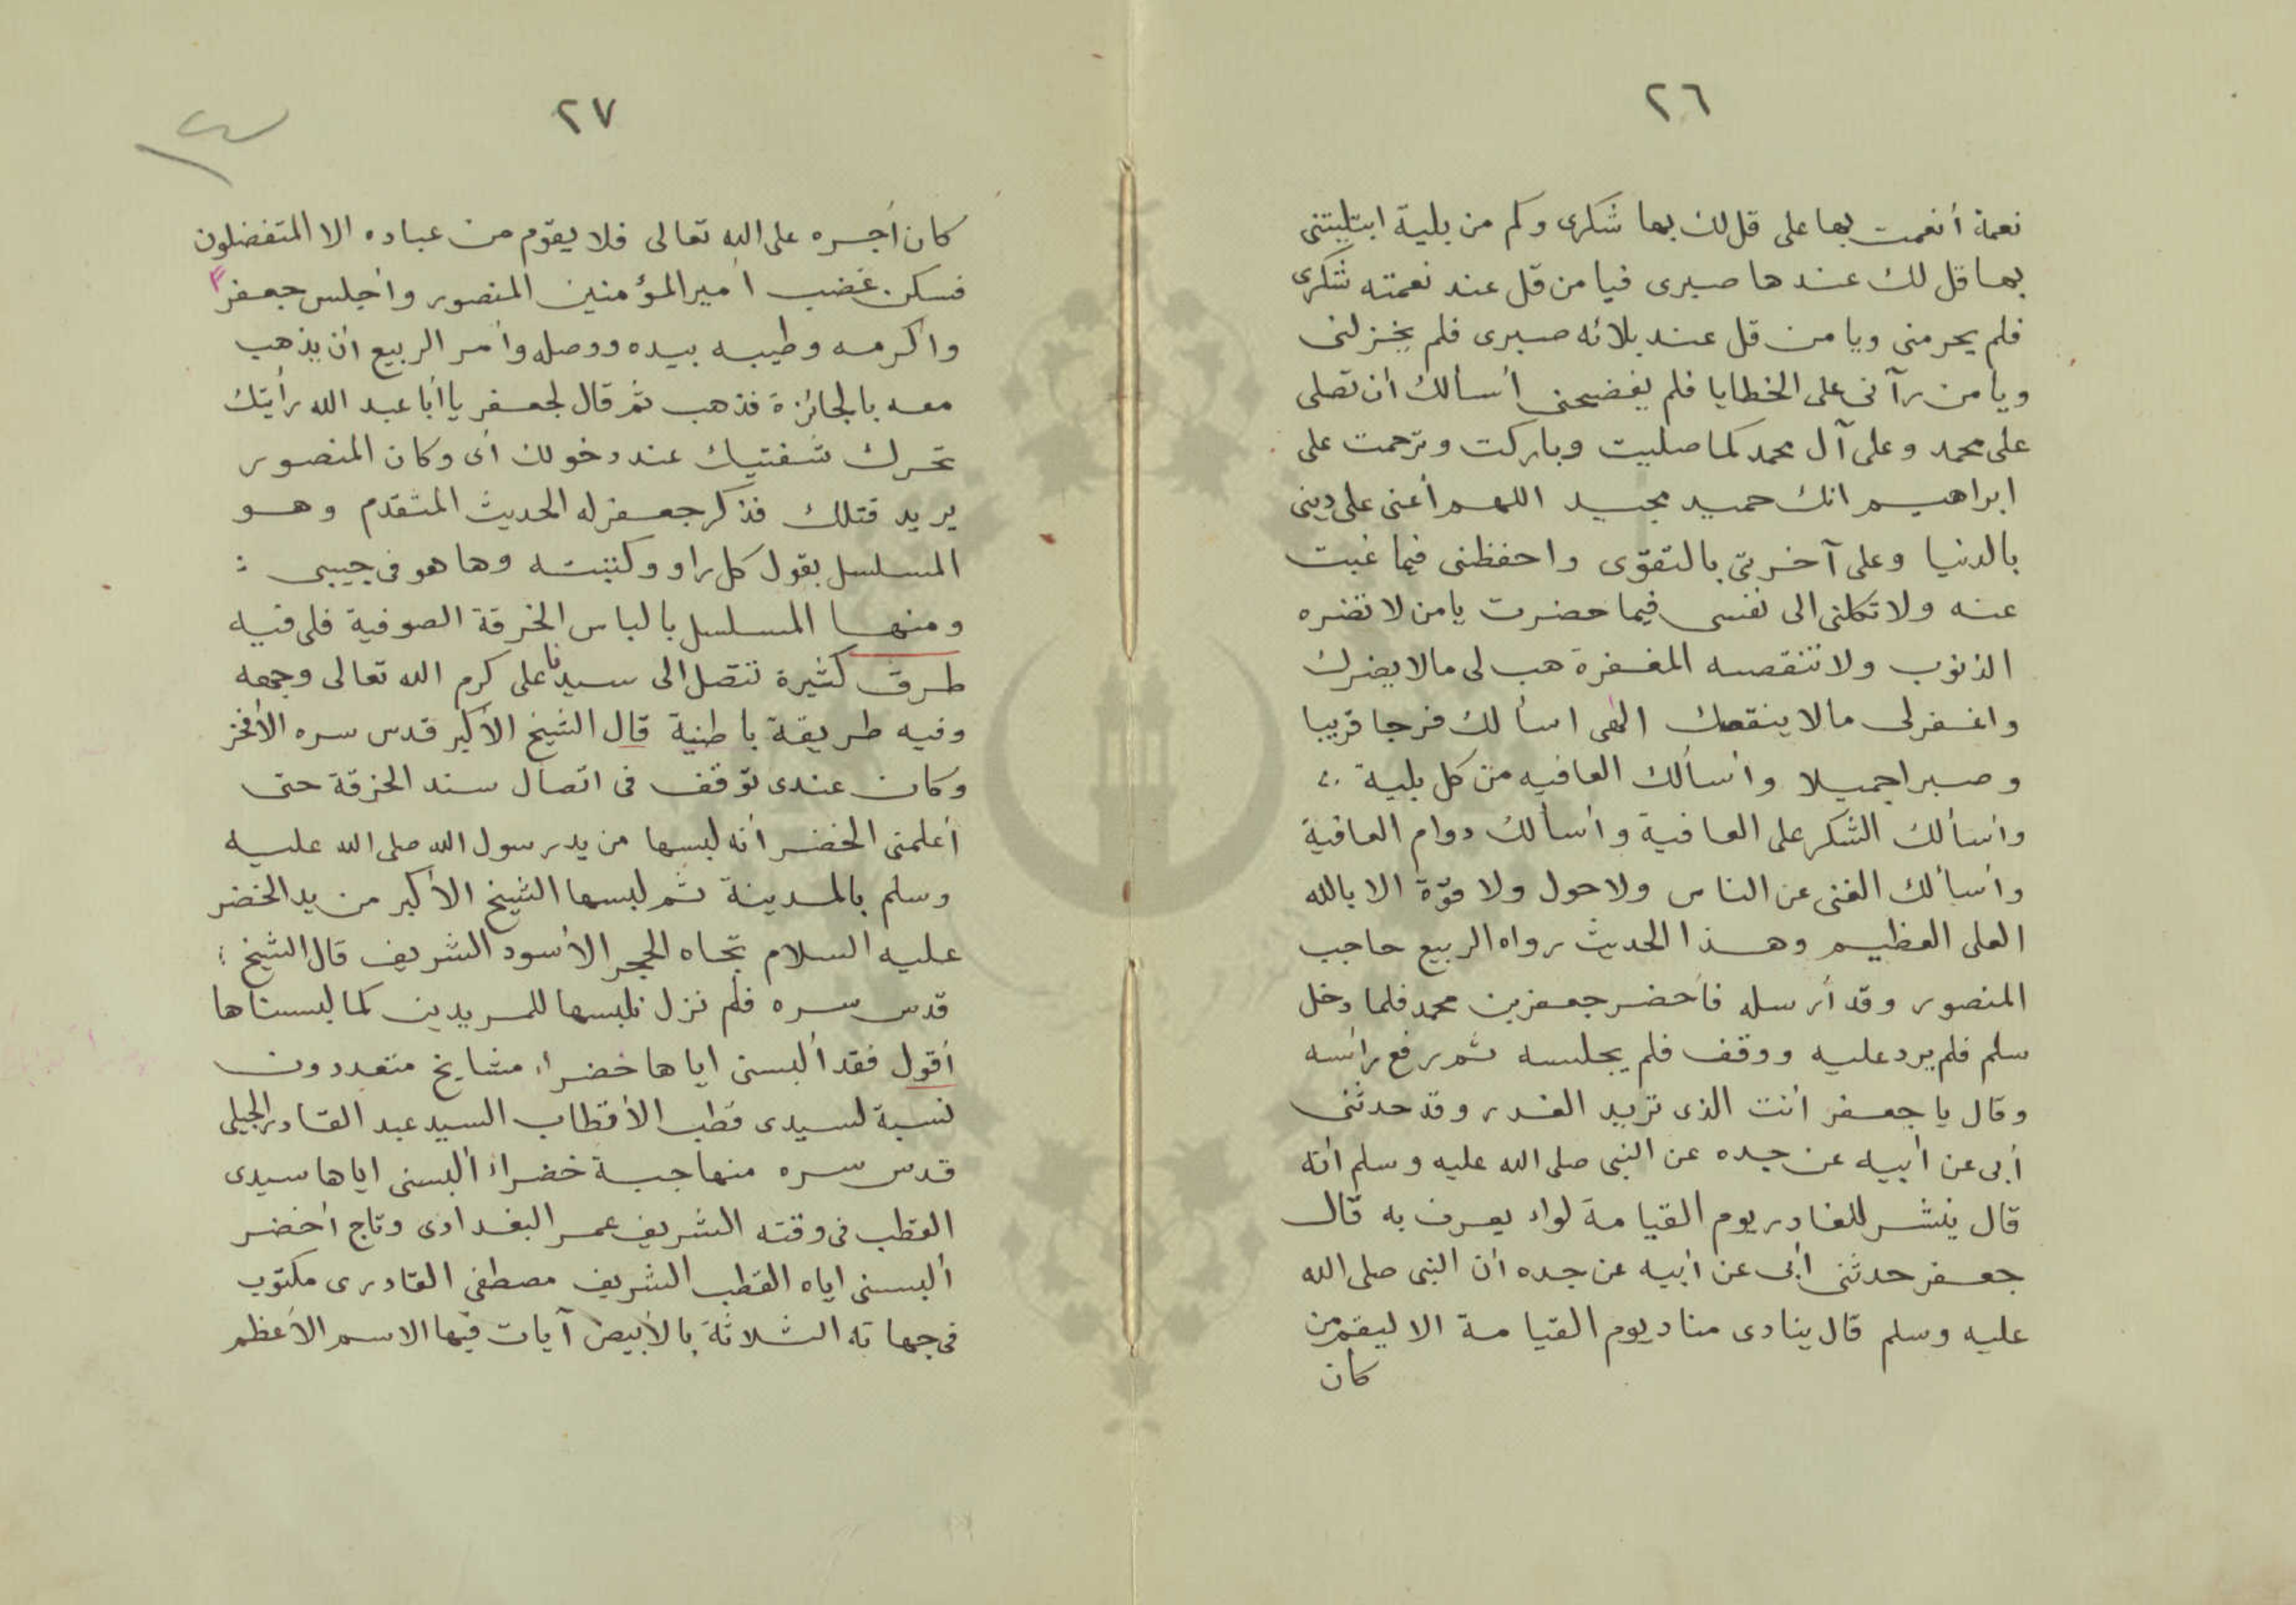 ٢٦
نعمة أنعمت بها على قل لك بها شكرى وكم من بلية ابتليتنى
بها قل لك عندها صبرى فيا من قل عند نعمته شكرى
فلم يحرمنى ويا من قل عند بلائه صبرى فلم يخذلنى
ويا من رآنى على الخطايا فلم يفضحنى أسألك أن تصلى
على محمد وعلى آل محمد كما صليت وباركت وترحمت على
ابراهيم انك حميد مجيد اللهم أعنى على دينى
بالدنيا وعلى آخرتى بالتقوى واحفظنى فيما غبت
عنه ولا تكلنى الى نفسى فيما حضرت يا من لا تضره
الذنوب ولا تنقصه المغفرة هب لى مالا يضرك
واغفر لى مالا ينقصك الهى اسألك فرجا قريبا
وصبرا جميلا وأسألك العافيه من كل بلية
وأسألك الشكر على العافية وأسألك دوام العافية
وأسألك الغنى عن الناس ولا حول ولا قوّة الا بالله
العلى العظيم وهذا الحديث رواه الربيع حاجب
المنصور وقد أرسله فأحضر جعفر بن محمد فلما دخل
سلم فلم يرد عليه ووقف فلم يجلسه ثم رفع رأسه
وقال يا جعفر أنت الذى تريد الغدر وقد حدثنى
أبى عن أبيه عن جده عن النبى صلى الله عليه وسلم أنه
قال ينشر للغادر يوم القيامة لواء يعرف به قال
جعفر حدثنى أبى عن أبيه عن جده أن النبى صلى الله
عليه وسلم قال ينادى مناد يوم القيامة الا ليقم من
كان
٢٧
كان أجره على الله تعالى فلا يقوم من عباده الا المتفضلون
فسكن غضب أمير المؤمنين المنصور وأجلس جعفر
وأكرمه وطيبه بيده ووصله وأمر الربيع أن يذهب
معه بالجائزة فذهب ثم قال لجعفر يا أبا عبد الله رأيتك
تحرك شفتيك عند دخولك أى وكان المنصور
يريد قتلك فذكر جعفر له الحديث المتقدم وهو
المسلسل بقول كل راو وكتبته وها هو فى جيبى :
ومنها المسلسل بالباس الخرقة الصوفية فلى فيه
طرق كثيرة تتصل الى سيدنا على كرم الله تعالى وجهه
وفيه طريقة باطنية قال الشيخ الأكبر قدس سره الأفخر
وكان عندى توقف فى اتصال سند الخرقة حتى
أعلمنى الخضر أنه لبسها من يد رسول الله صلى الله عليه
وسلم بالمدينة ثم لبسها الشيخ الأكبر من يد الخضر
عليه السلام تجاه الحجر الأسود الشريف قال الشيخ :
قدس سره فلم نزل نلبسها للمريدين كما لبسناها
أقول فقد ألبسنى اياها خضراء مشايخ متعددون
نسبة لسيدى قطب الأقطاب السيد عبد القادر الجيلى
قدس سره منها جبة خضراء ألبسنى اياها سيدى
القطب فى وقته الشريف عمر البغدادى وتاج أخضر
ألبسنى اياه القطب الشريف مصطفى القادرى مكتوب
فى جهاته الثلاثة بالأبيض آيات فيها الاسم الأعظم